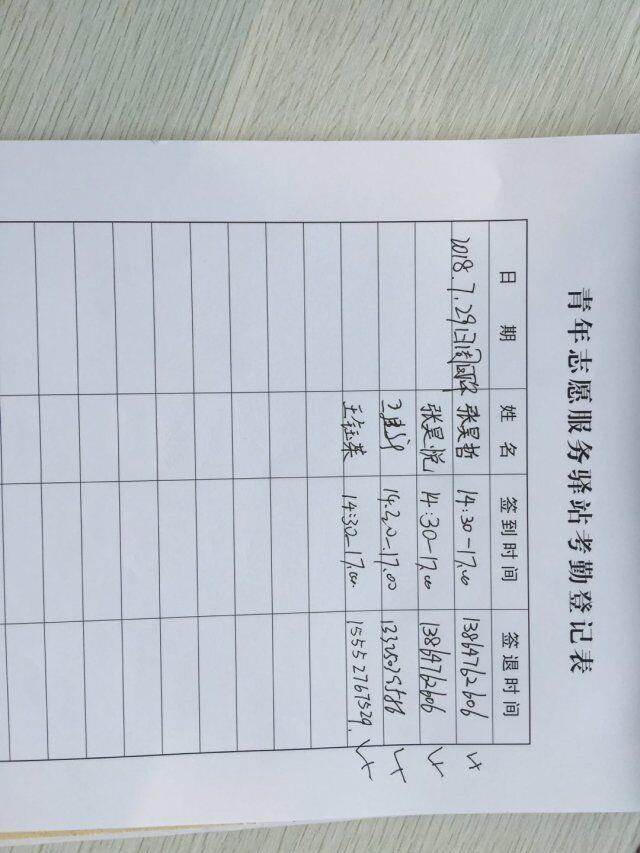 青年志愿服务驿站考勤登记表
日期 姓名 签到时间 签退时间
2018.7.29日 张昊哲 14:30-17.00 13864762606
张昊悦 14:30-17.00 13864762606
14.20-17.00
王钰荣 14:30-17.00. 15552767529.